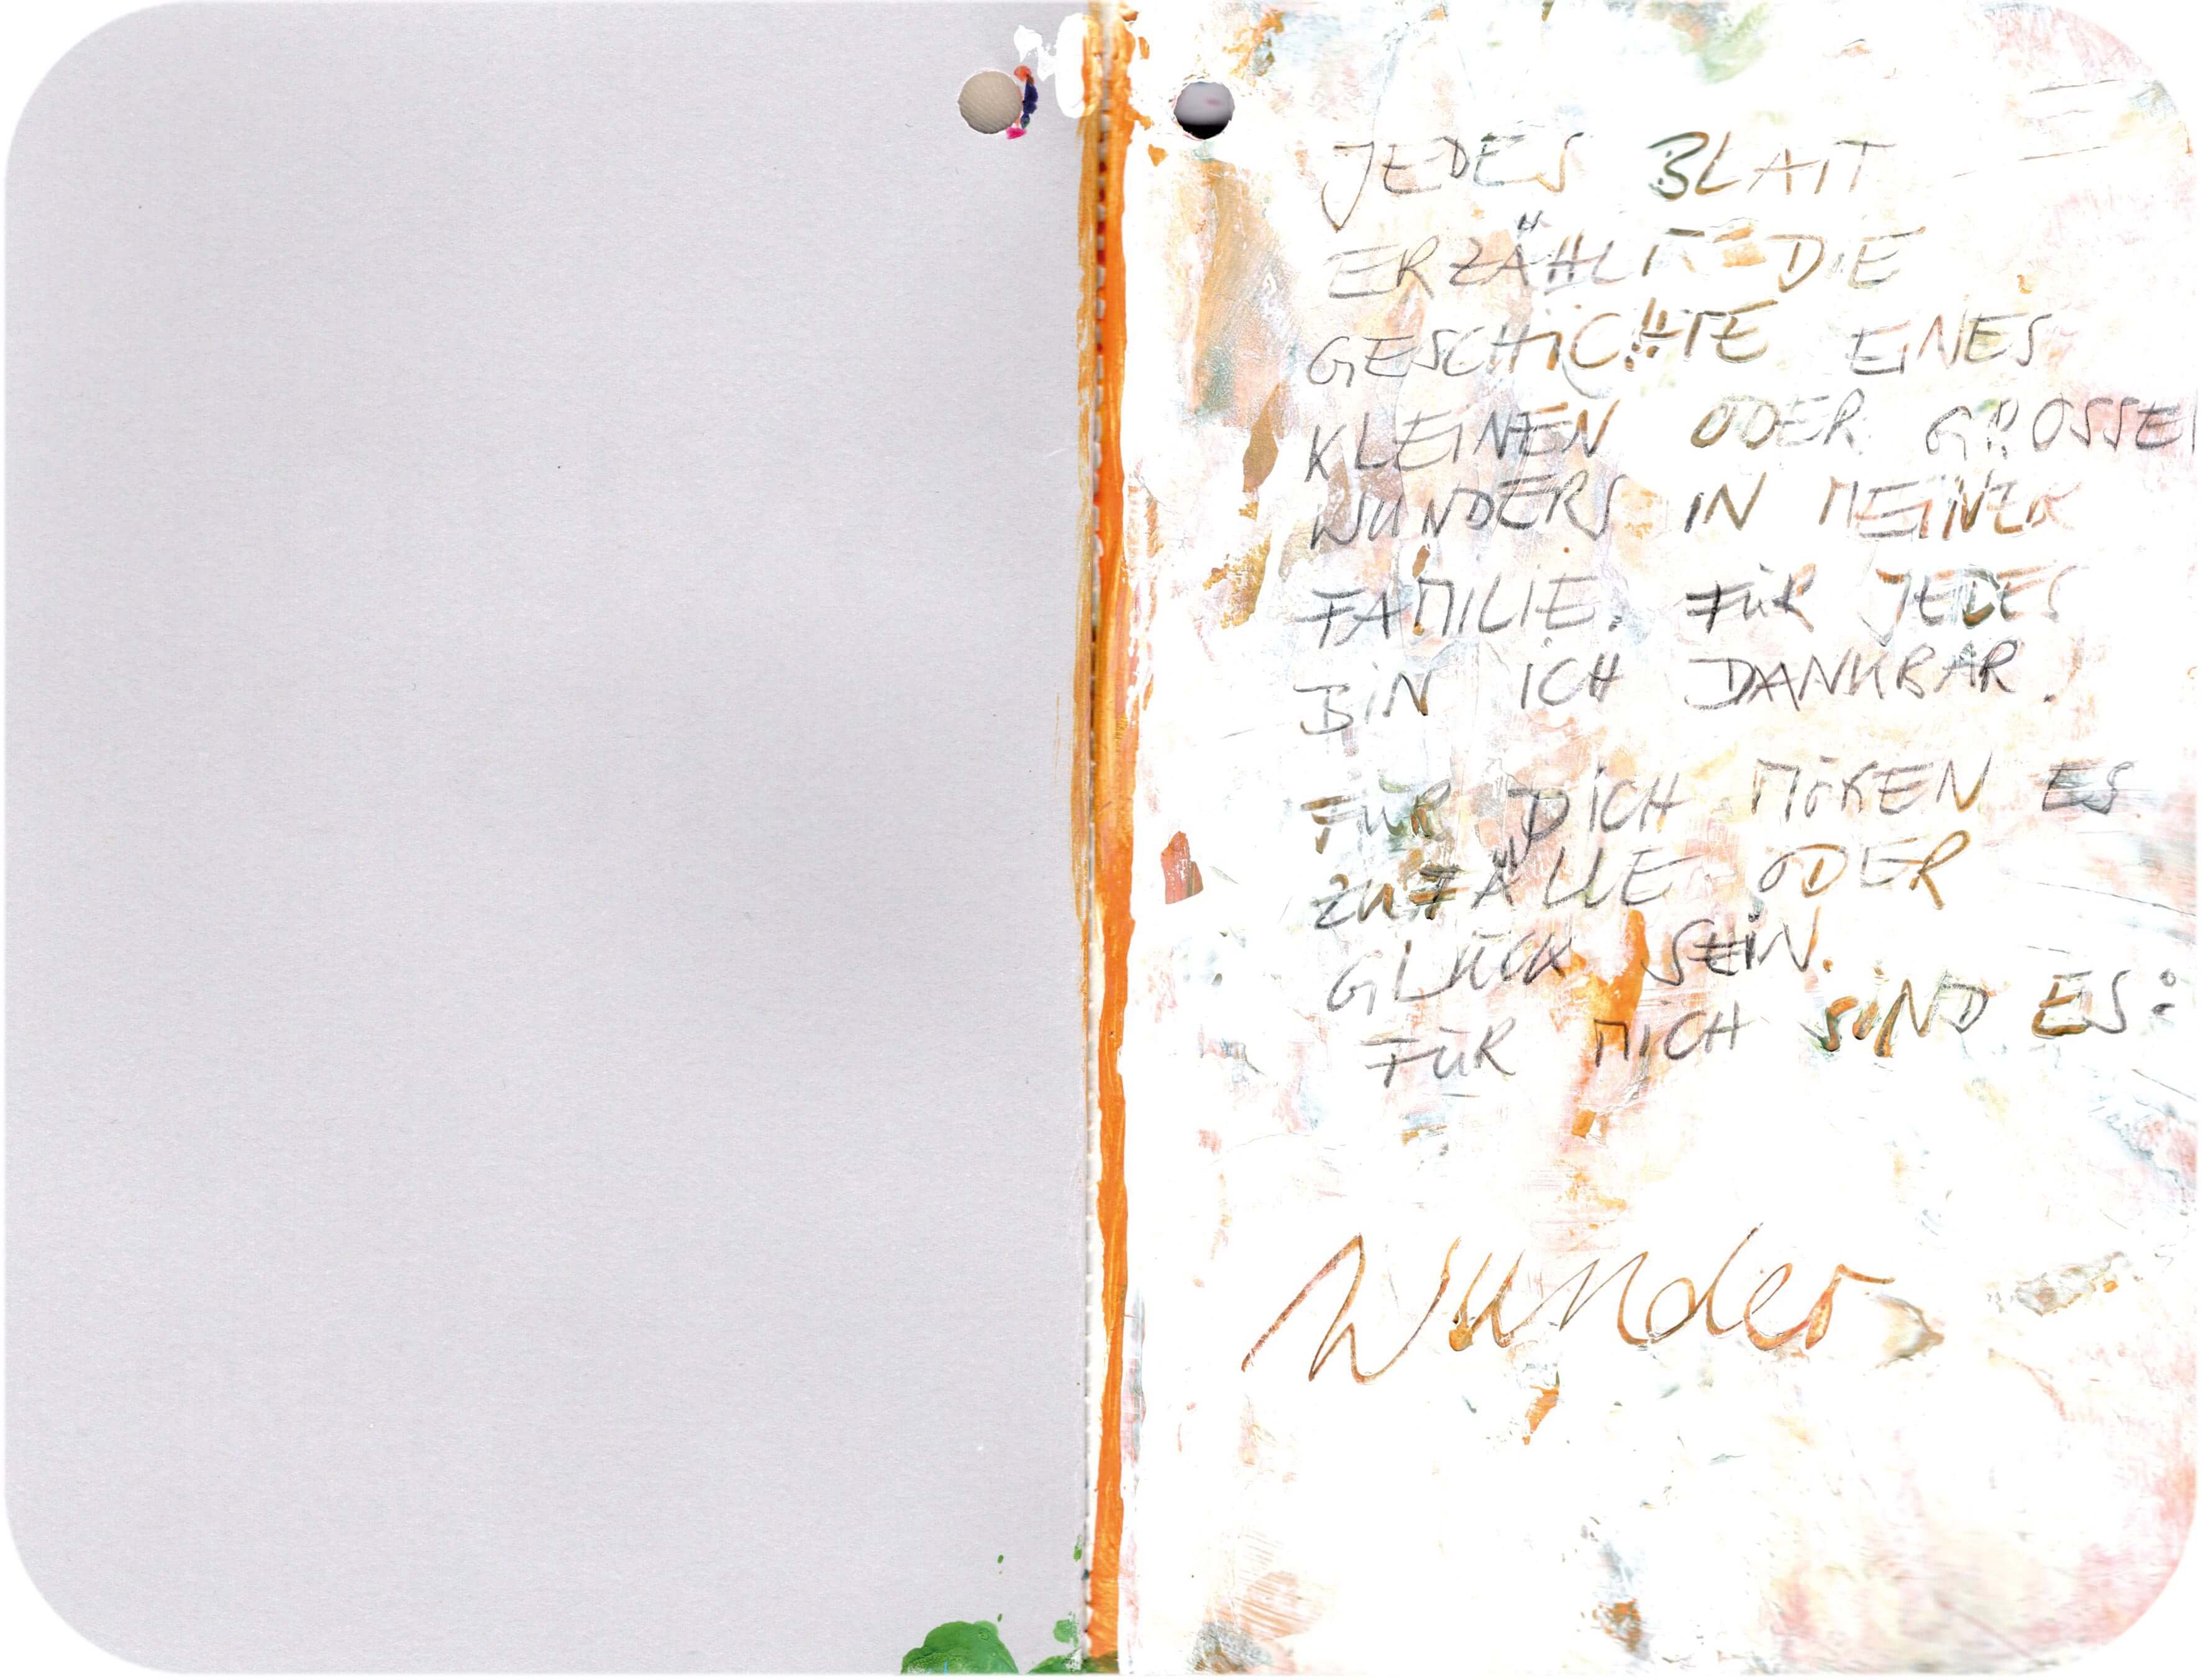 JEDES BLATT
ERZÄHLT DIE
GESCHICHTE EINES
KLEINEN ODER GROSSEN
WUNDERS IN MEINER
FAMILIE. FÜR JEDES
BIN ICH DANKBAR.
FÜR DICH MÖGEN ES
ZUFÄLLE ODER
GLÜCK SEIN.
FÜR MICH SIND ES:
Wunder